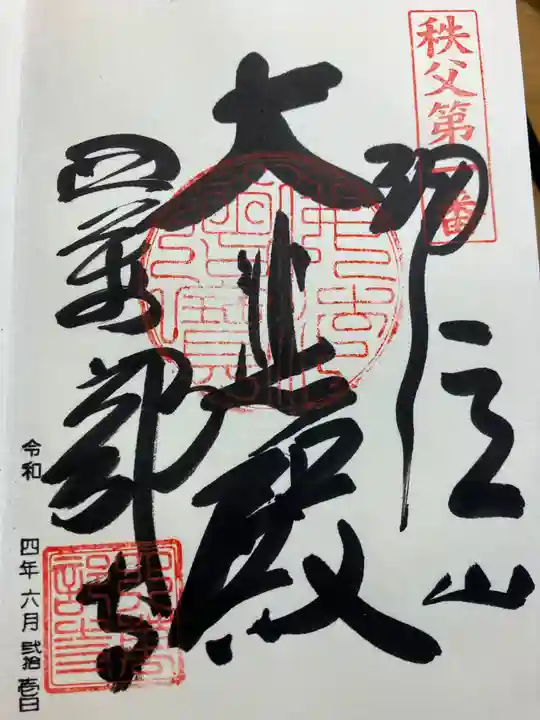 秩父第一番
誦経山
大悲殿
四萬部寺
令和 四年 六月 弐拾 壱日